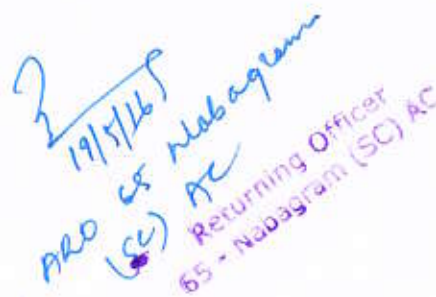 19/5/16
ARO 65 Nabagram
(SC) AC
Returning Officer
65 - Nabagram (SC) AC